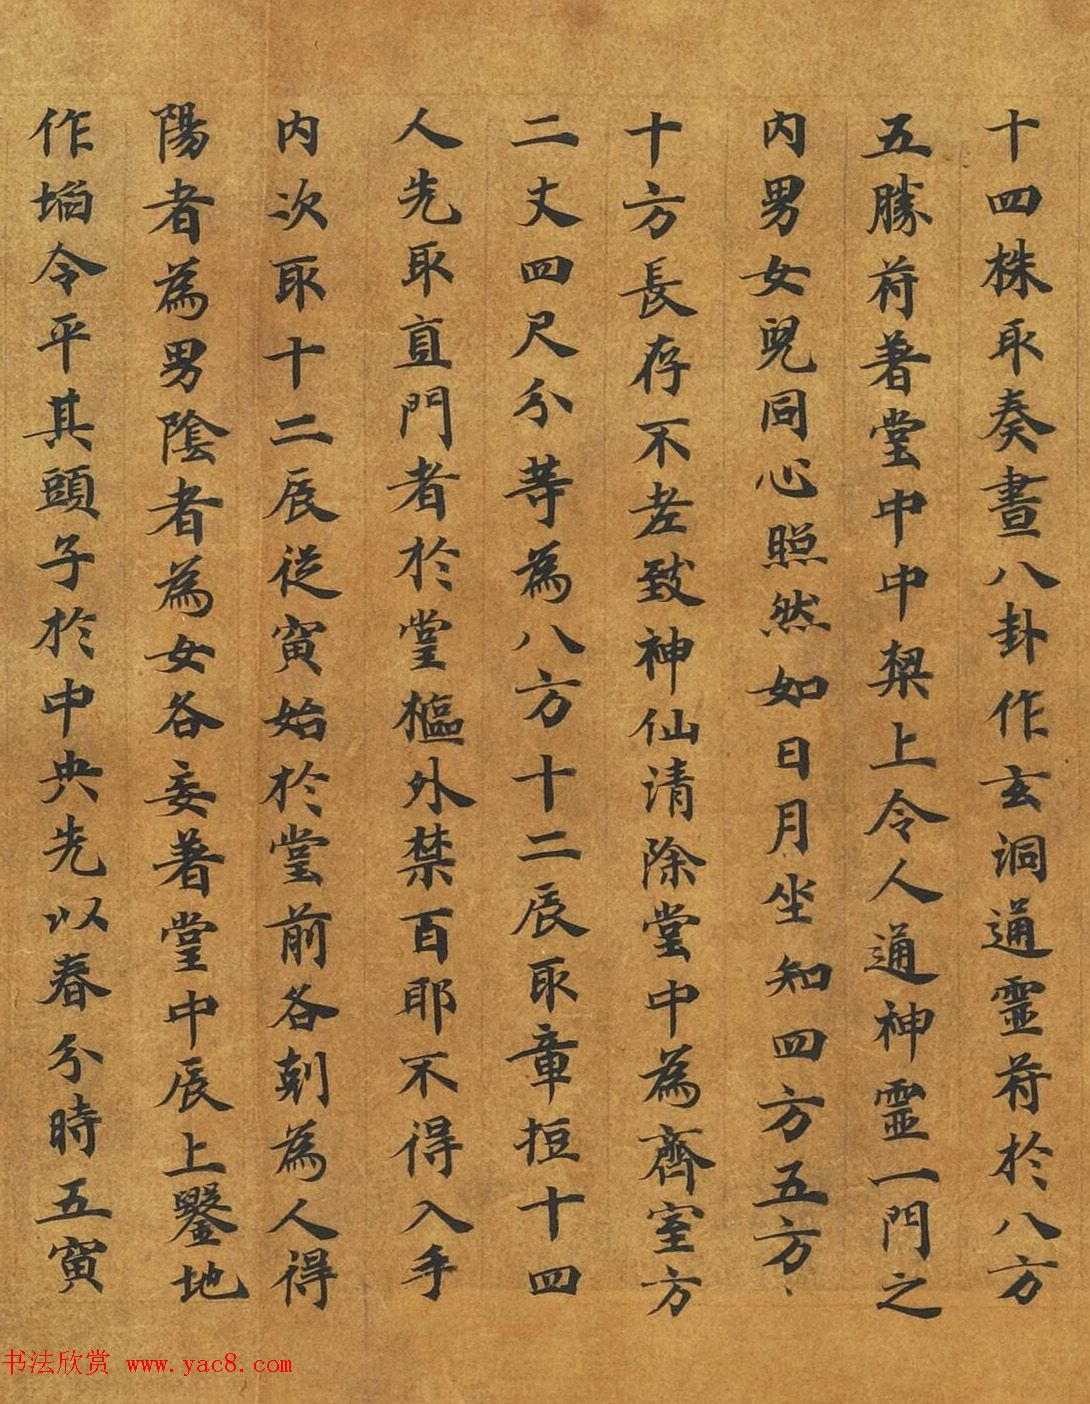 十四株取奏晝八卦作玄洞通靈苻於八方
五勝苻著堂中中梁上令人通神靈一門之
内男女兒同心照然如日月坐知四方五方
十方長存不老致神仙清除堂中為齋室方
二丈四尺分等為八方十二辰取章拒十四
人先取直門者於堂樞外禁百耶不得入手
内次取十二辰從寅始於堂前各刾為人得
陽者為男陰者為女各妾著堂中辰上鑿地
作埳令平其頭子於中央先以春分時五寅
书法欣赏 www.yac8.com